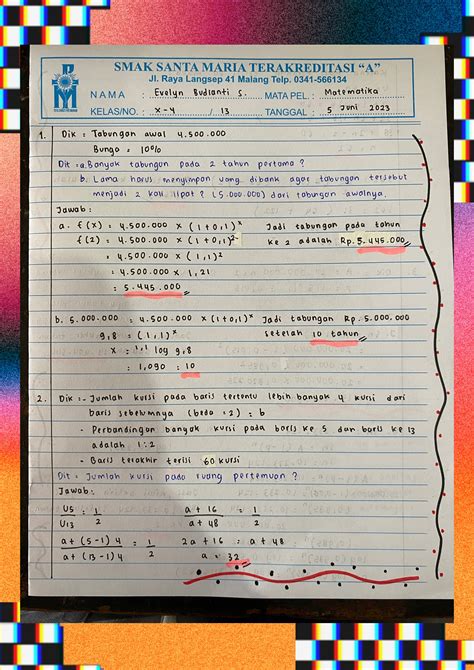 SMAK SANTA MARIA TERAKREDITASI "A"
Jl. Raya Langsep 41 Malang Telp. 0341-566134
NAMA : Evelyn Budianti S. MATA PEL. : Matematika
KELAS/NO. : X-4 / 13 TANGGAL : 5 Juni 2023
1. Dik : Tabungan awal 4.500.000
Bunga = 10%
Dit : a. Banyak tabungan pada 2 tahun pertama ?
b. Lama harus menyimpan uang dibank agar tabungan tersebut
menjadi 2 kali lipat ? (5.000.000) dari tabungan awalnya.
Jawab :
a. f(x) = 4.500.000 × (1+0,1)ˣ Jadi tabungan pada tahun
f(2) = 4.500.000 × (1+0,1)² ke 2 adalah Rp. 5.445.000
= 4.500.000 × (1,1)²
= 4.500.000 × 1,21
= 5.445.000
b. 5.000.000 = 4.500.000 × (1+0,1)ˣ Jadi tabungan Rp. 5.000.000
9,8 = (1,1)ˣ setelah 10 tahun
x = ¹,¹ log 9,8
= 1,090 = 10
2. Dik : - Jumlah kursi pada baris tertentu lebih banyak 4 kursi dari
baris sebelumnya (beda = 2) = b
- Perbandingan banyak kursi pada baris ke 5 dan baris ke 13
adalah 1:2
- Baris terakhir terisi 60 kursi
Dit : Jumlah kursi pada ruang pertemuan ?
Jawab :
U5 / U13 = 1/2 (a+16) / (a+48) = 1/2
a+(5-1)4 / a+(13-1)4 = 1/2 2a+16 = a+48
a = 32